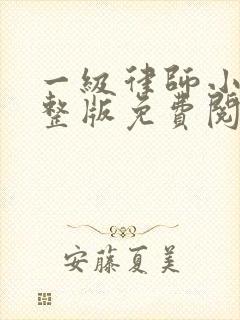 一級律師小
整版免費閱
安藤夏美